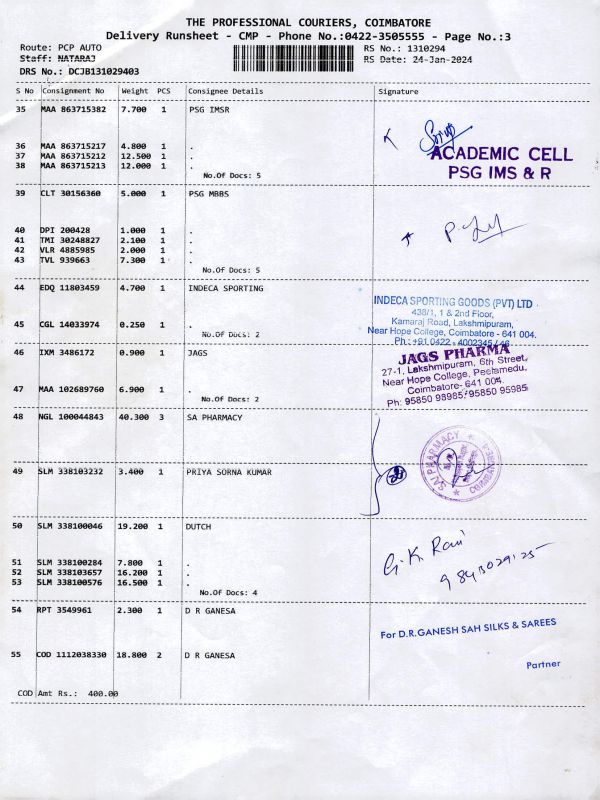 THE PROFESSIONAL COURIERS, COIMBATORE
Delivery Runsheet - CMP - Phone No.:0422-3505555 - Page No.:3
Route: PCP AUTO
RS No.: 1310294
Staff: NATARAJ
RS Date: 24-Jan-2024
DRS No.: DCJB131029403
S No Consignment No Weight PCS Consignee Details Signature
35 MAA 863715382 7.700 1 PSG IMSR
36 MAA 863715217 4.800 1 .
37 MAA 863715212 12.500 1 .
38 MAA 863715213 12.000 1 .
No.Of Docs: 5
ACADEMIC CELL
PSG IMS & R
39 CLT 30156360 5.000 1 PSG MBBS
40 DPI 200428 1.000 1 .
41 TMI 30248827 2.100 1 .
42 VLR 4885985 2.000 1 .
43 TVL 939663 7.300 1 .
No.Of Docs: 5
44 EDQ 11803459 4.700 1 INDECA SPORTING
45 CGL 14033974 0.250 1 .
No.Of Docs: 2
INDECA SPORTING GOODS (PVT) LTD
438/1, 1 & 2nd Floor,
Kamaraj Road, Lakshmipuram,
Near Hope College, Coimbatore - 641 004.
Ph : +91 0422 - 4002345 / 46
46 IXM 3486172 0.900 1 JAGS
47 MAA 102689760 6.900 1 .
No.Of Docs: 2
JAGS PHARMA
27-1, Lakshmipuram, 6th Street,
Near Hope College, Peelamedu,
Coimbatore- 641 004.
Ph: 95850 98985, 95850 95985
48 NGL 100044843 40.300 3 SA PHARMACY
49 SLM 338103232 3.400 1 PRIYA SORNA KUMAR
50 SLM 338100046 19.200 1 DUTCH
51 SLM 338100284 7.800 1 .
52 SLM 338103657 16.200 1 .
53 SLM 338100576 16.500 1 .
No.Of Docs: 4
G.K. Ravi
54 RPT 3549961 2.300 1 D R GANESA
55 COD 1112038330 18.800 2 D R GANESA
For D.R.GANESH SAH SILKS & SAREES
Partner
COD Amt Rs.: 400.00